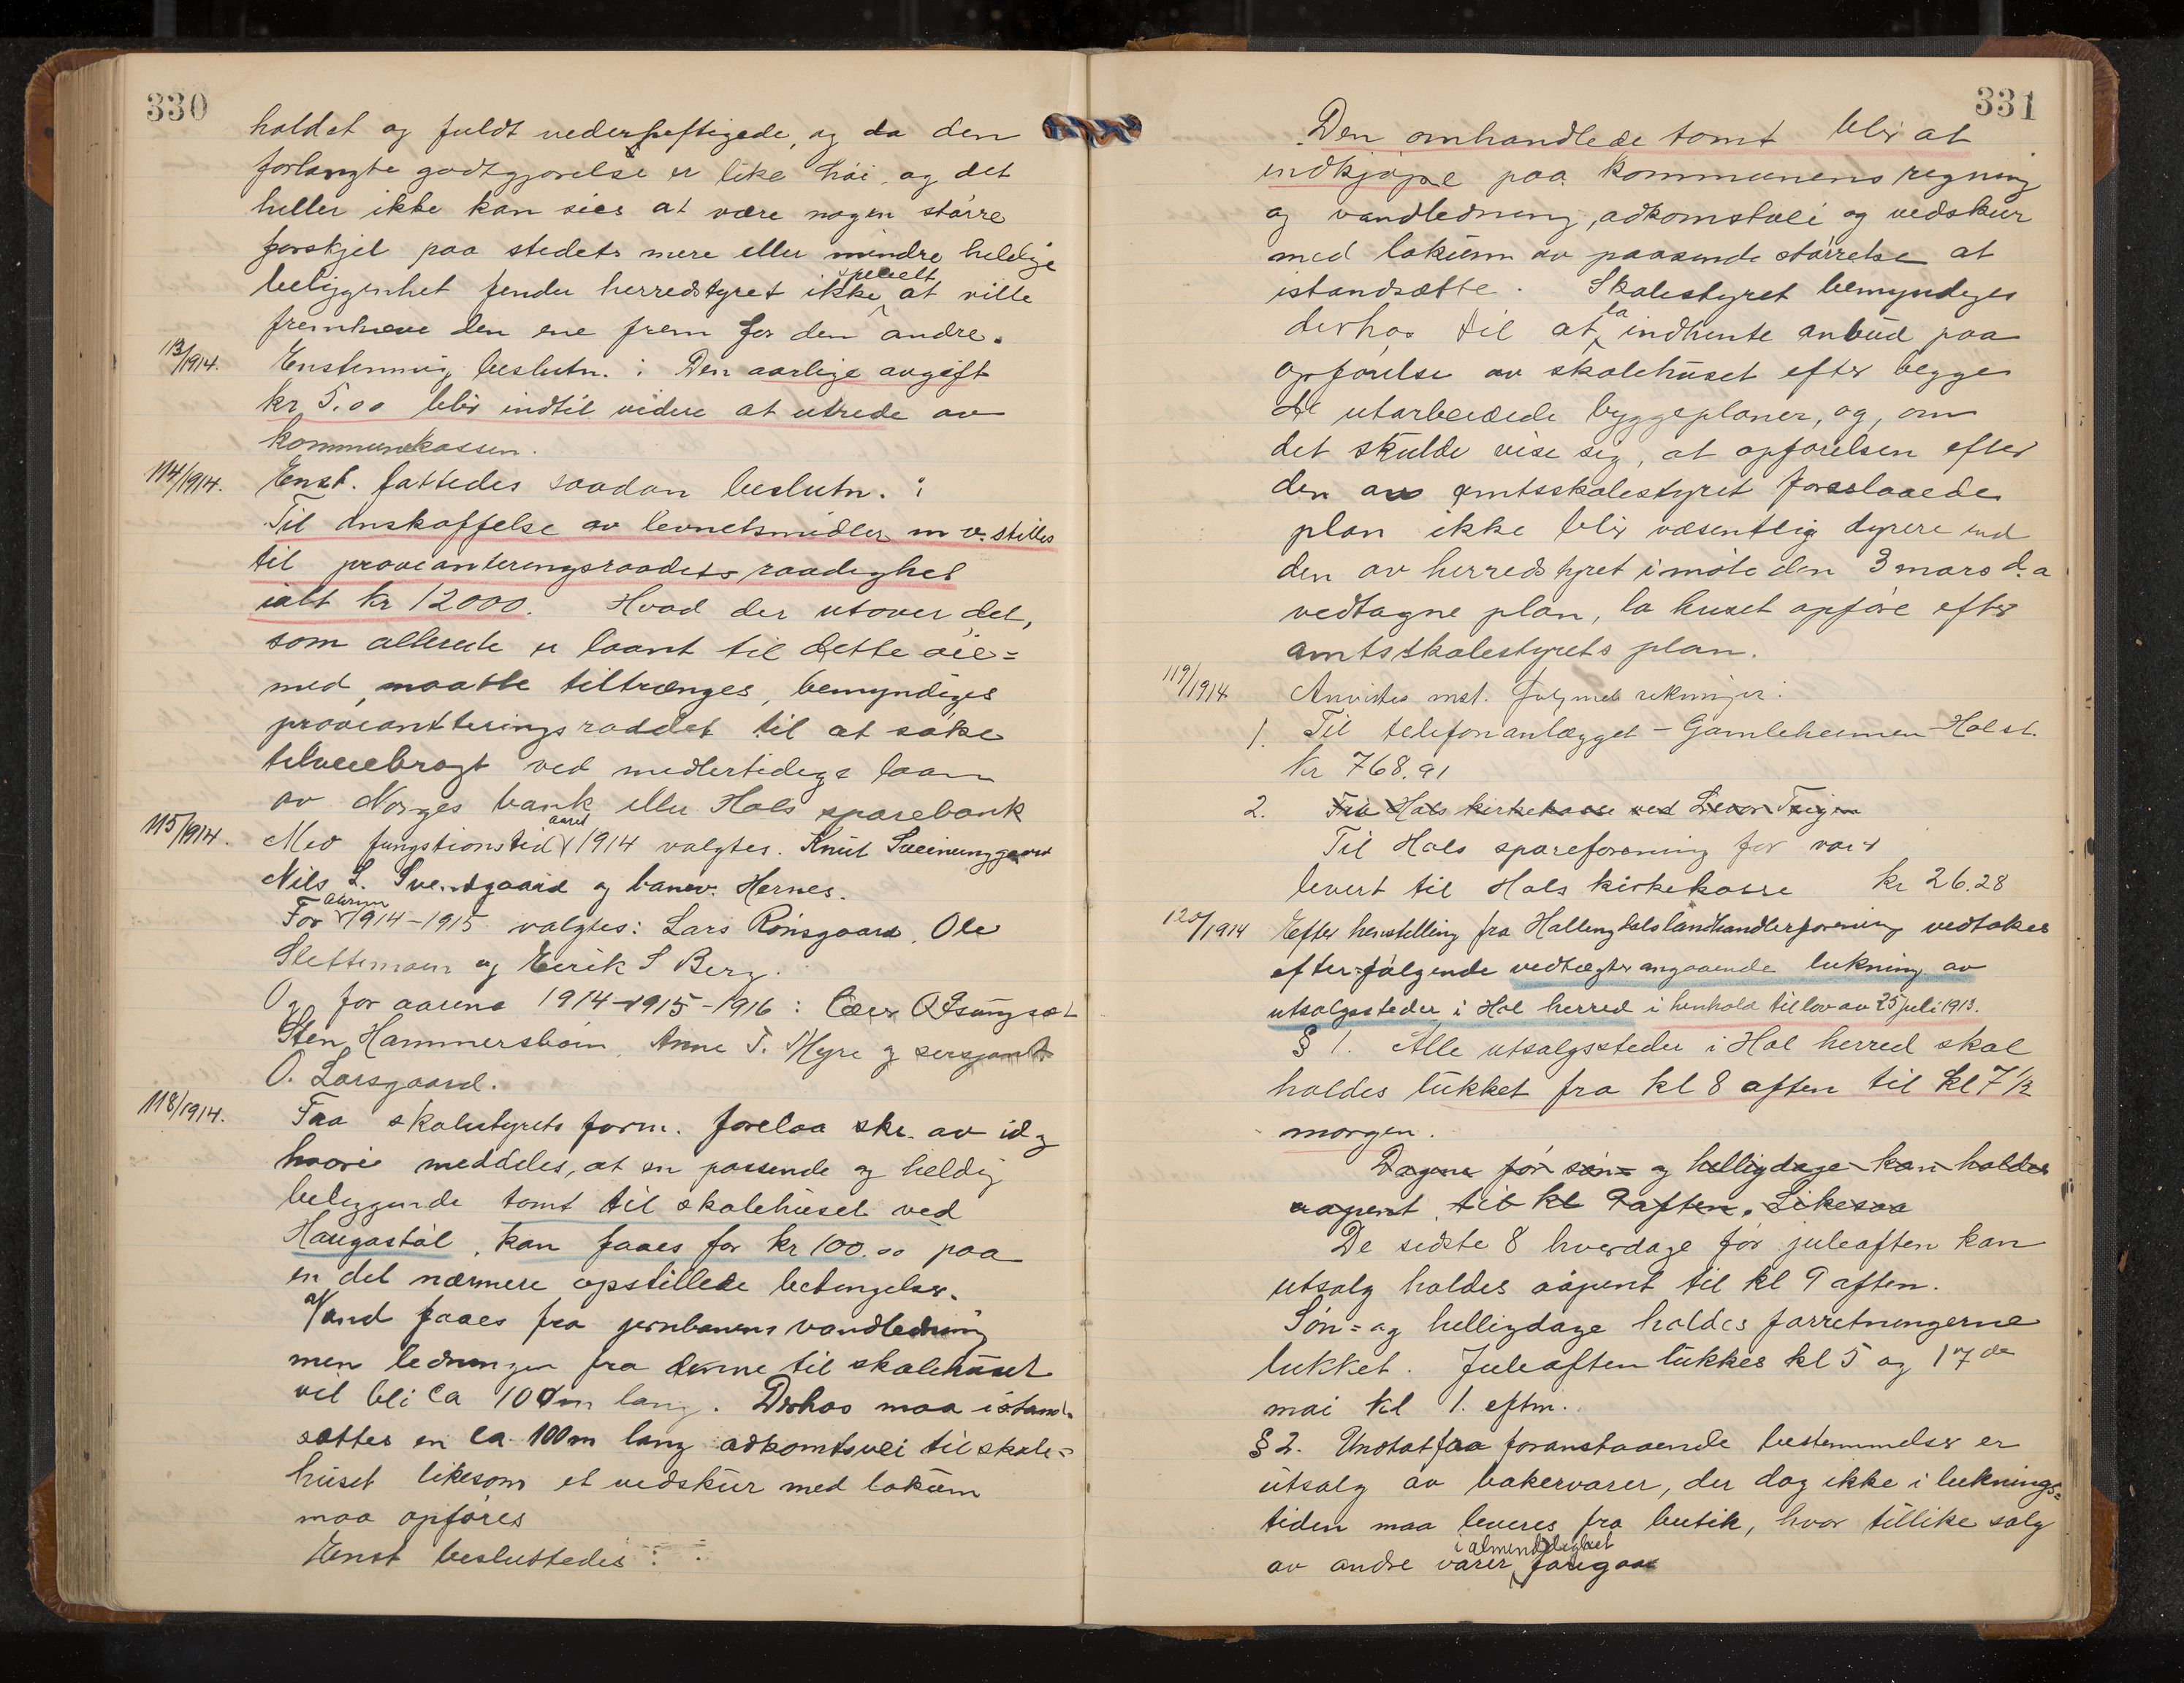 330
holdet og fuldt vederheftigede, og da den
forlangte godtgjørelse er like høi, og det
heller ikke kan sies at være nogen større
forskjel paa stedets mere eller mindre heldige
specielt
beliggenhet finder herredstyret ikke at ville
fremhæve den ene frem for den andre.
113/1914. Enstemmig beslutn. : Den aarlige avgift
kr 5.00 blir indtil videre at utrede av
kommunekassen.
114/1914. Enst. fattedes saadan beslutn. :
Til anskaffelse av levnetsmidler m v. stilles
til provianteringsraadets raadighet
ialt kr 12000. Hvad der utover det,
som allerede er laant til dette øie=
med, maatte tiltrænges, bemyndiges
provianteringsraadet til at søke
tilveiebragt ved midlertidige laan
av Norges bank eller Hols sparebank
aaret
115/1914. Med fungstionstid 1914 valgtes. Knut Sveinunggaard
Nils L. Svendgaard og banev. Hernes.
aarene
For 1914-1915 valgtes: Lars Rønsgaard, Ole
Slettemoen og Eirik S Berg.
Og for aarene 1914-1915-1916: Lærer Q Isungset
Sten Hammersbøin, Anne T. Myre og sersjant
O. Larsgaard.
118/1914. Fra skolestyrets form. forelaa skr. av idg
hvori meddeles, at en passende og heldig
beliggende tomt til skolehuset ved
Haugastøl, kan faaes for kr 100.00 paa
en del nærmere opstillede betingelser.
Vand faaes fra jernbanens vandledning
men ledningen fra denne til skolehuset
vil bli ca 100m lang. Derhos maa istand-
sættes en ca 100m lang adkomstvei til skole=
huset likesom et vedskur med lokum
maa opføres
Enst besluttedes :
331
Den omhandlede tomt blir at
indkjøpe paa kommunens regning
og vandledning, adkomstvei og vedskur
med lokum av passende størrelse at
istandsætte. Skolestyret bemyndiges
la
derhos til at indhente anbud paa
opførelse av skolehuset efter begge
de utarbeidede byggeplaner, og, om
det skulde vise sig, at opførelsen efter
den av amtsskolestyret forslaaede
plan ikke blir væsentlig dyrere end
den av herredstyret i møte den 3 mars d. a
vedtagne plan, la huset opføre efter
amtsskolestyrets plan.
119/1914 Anvistes enst. følgende rekninger:
1. Til telefonanlægget - Gamleheimen - Holst.
Kr 768.91
2. Fra Hols kirkekasse ved Levor
Til Hols spareforening for var
levert til Hols kirkekasse kr 26.28
120/1914 Efter henstilling fra Hallingdals landhandlerforening vedtokes
efter-følgende vedtægter angaaende lukning av
utsalgssteder i Hol herred i henhold til lov av 25 juli 1913.
§ 1. Alle utsalgssteder i Hol herred skal
holdes lukket fra kl 8 aften til kl 7 1/2
morgen.
Dagene før søn= og helligdage kan holdes
aapent til kl 9 aften. Likesaa
De sidste 8 hverdage før juleaften kan
utsalg holdes aapent til kl 9 aften.
Søn= og helligdage holdes forretningerne
lukket. Juleaften lukkes kl 5 og 17de
mai kl 1. eftm.
§ 2. Undtat fra foranstaaende bestemmelser er
utsalg av bakervarer, der dog ikke i luknings=
tiden maa leveres fra butik, hvor tillike salg
i almindelighet
av andre varer foregaar